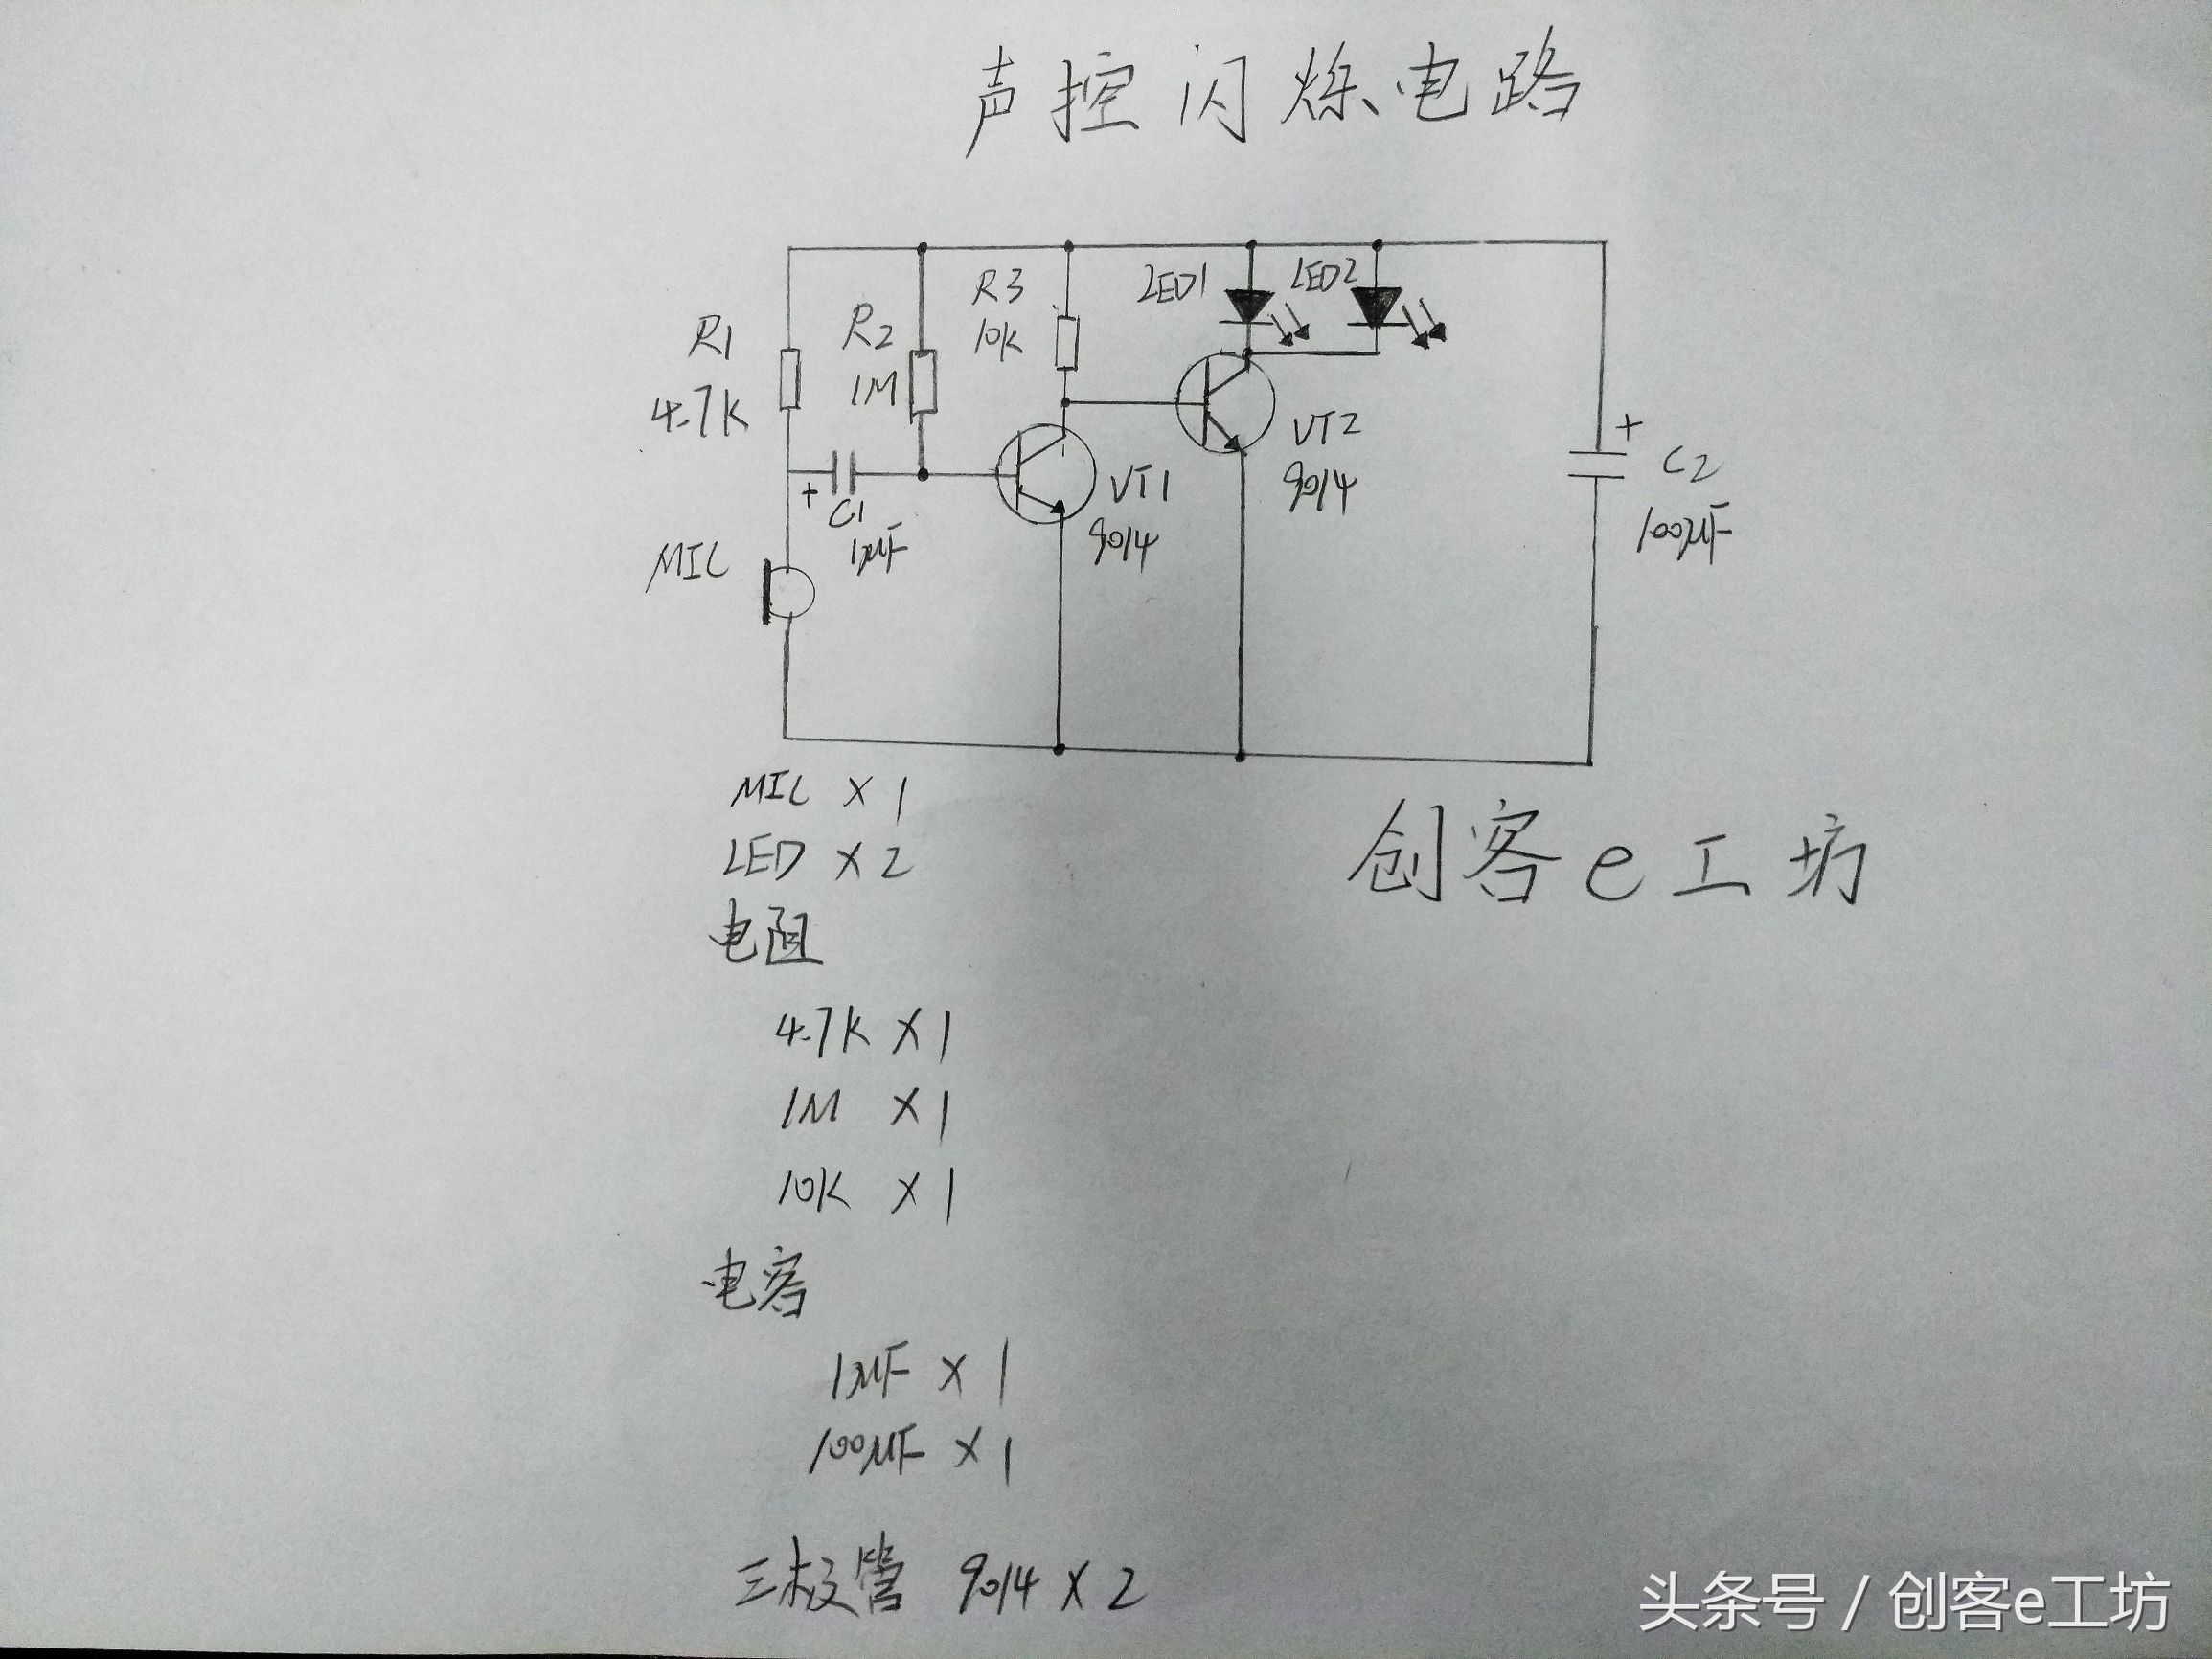 声控闪烁电路
R1
4.7K
R2
1M
R3
10K
LED1
LED2
+
C1
1μF
MIC
VT1
9014
VT2
9014
+
C2
100μF
MIC × 1
LED × 2
电阻
4.7K × 1
1M × 1
10K × 1
电容
1μF × 1
100μF × 1
三极管 9014 × 2
创客e工坊
头条号 / 创客e工坊